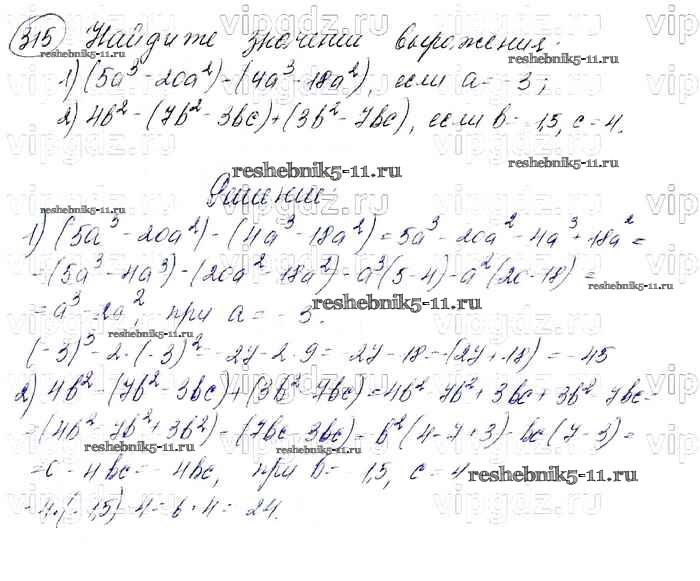 315 Найдите значении выражения:
1) (5a³ - 20a²) - (4a³ - 18a²), если a = -3;
2) 4b² - (7b² - 3bc) + (3b² - 7bc), если b = -1,5, c = 4.
Решении:
1) (5a³ - 20a²) - (4a³ - 18a²) = 5a³ - 20a² - 4a³ + 18a² =
= (5a³ - 4a³) - (20a² - 18a²) = a³(5 - 4) - a²(20 - 18) =
= a³ - 2a², при a = -3.
(-3)³ - 2·(-3)² = -27 - 2·9 = -27 - 18 = -(27 + 18) = -45
2) 4b² - (7b² - 3bc) + (3b² - 7bc) = 4b² - 7b² + 3bc + 3b² - 7bc =
= (4b² - 7b² + 3b²) - (7bc - 3bc) = b²(4 - 7 + 3) - bc(7 - 3) =
= 0 - 4bc = -4bc, при b = -1,5, c = 4
-4·(-1,5)·4 = 6·4 = 24.
reshebnik5-11.ru
vipgdz.ru